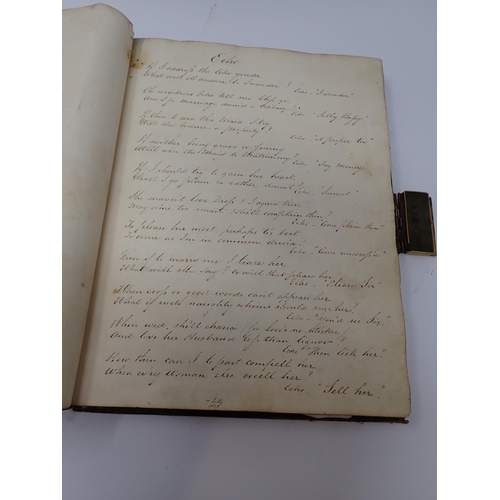 Echo
If I address the Echo yonder
What will its answer be I wonder?
Echo "I wonder"
Oh wondrous Echo tell me
Am I for marriage or
Echo "Silly Boy"
If then to win this Maid I try
Will she become a property?
Echo - "A proper tie"
If neither being grave or funny
Will win the Maid to Matrimony?
Echo "Try money"
If I should try to gain her heart
Shall I go plain or rather smart?
Echo "Smart"
She mayn't love Dress & I again then
May come too smart & she'll complain then?
Echo - "Come plain then"
To please her most perhaps tis best
To come as I'm in common
Echo - "Come undressed"
Then if to marry me I teaze her
What will she say if that should please her
Echo - "Please Sir"
When cross or good words can't appease her
What if such naughty whims should seize her?
Echo - "You'd see Sir"
When wed, she'll change for Love's no sticker
And love her Husband less than liquor
Echo "Then lick her"
How then can I to part compell her
When every Woman else excell her?
Echo. "Sell her"